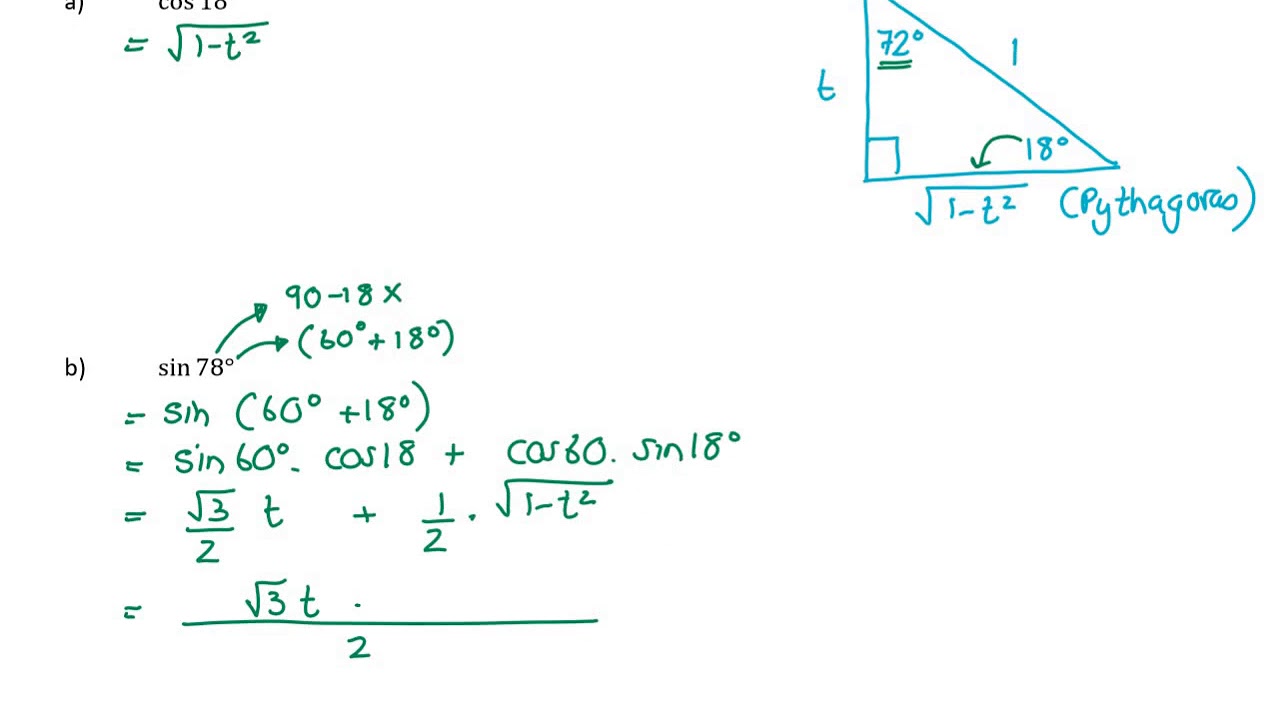 a) cos 18
= √1-t²
72°
1
t
18°
√1-t² (Pythagoras)
90-18 x
(60°+18°)
b) sin 78°
= sin (60° +18°)
= sin 60°. cos 18 + cos 60. sin 18°
= √3/2 t + 1/2 . √1-t²
= √3 t .
2